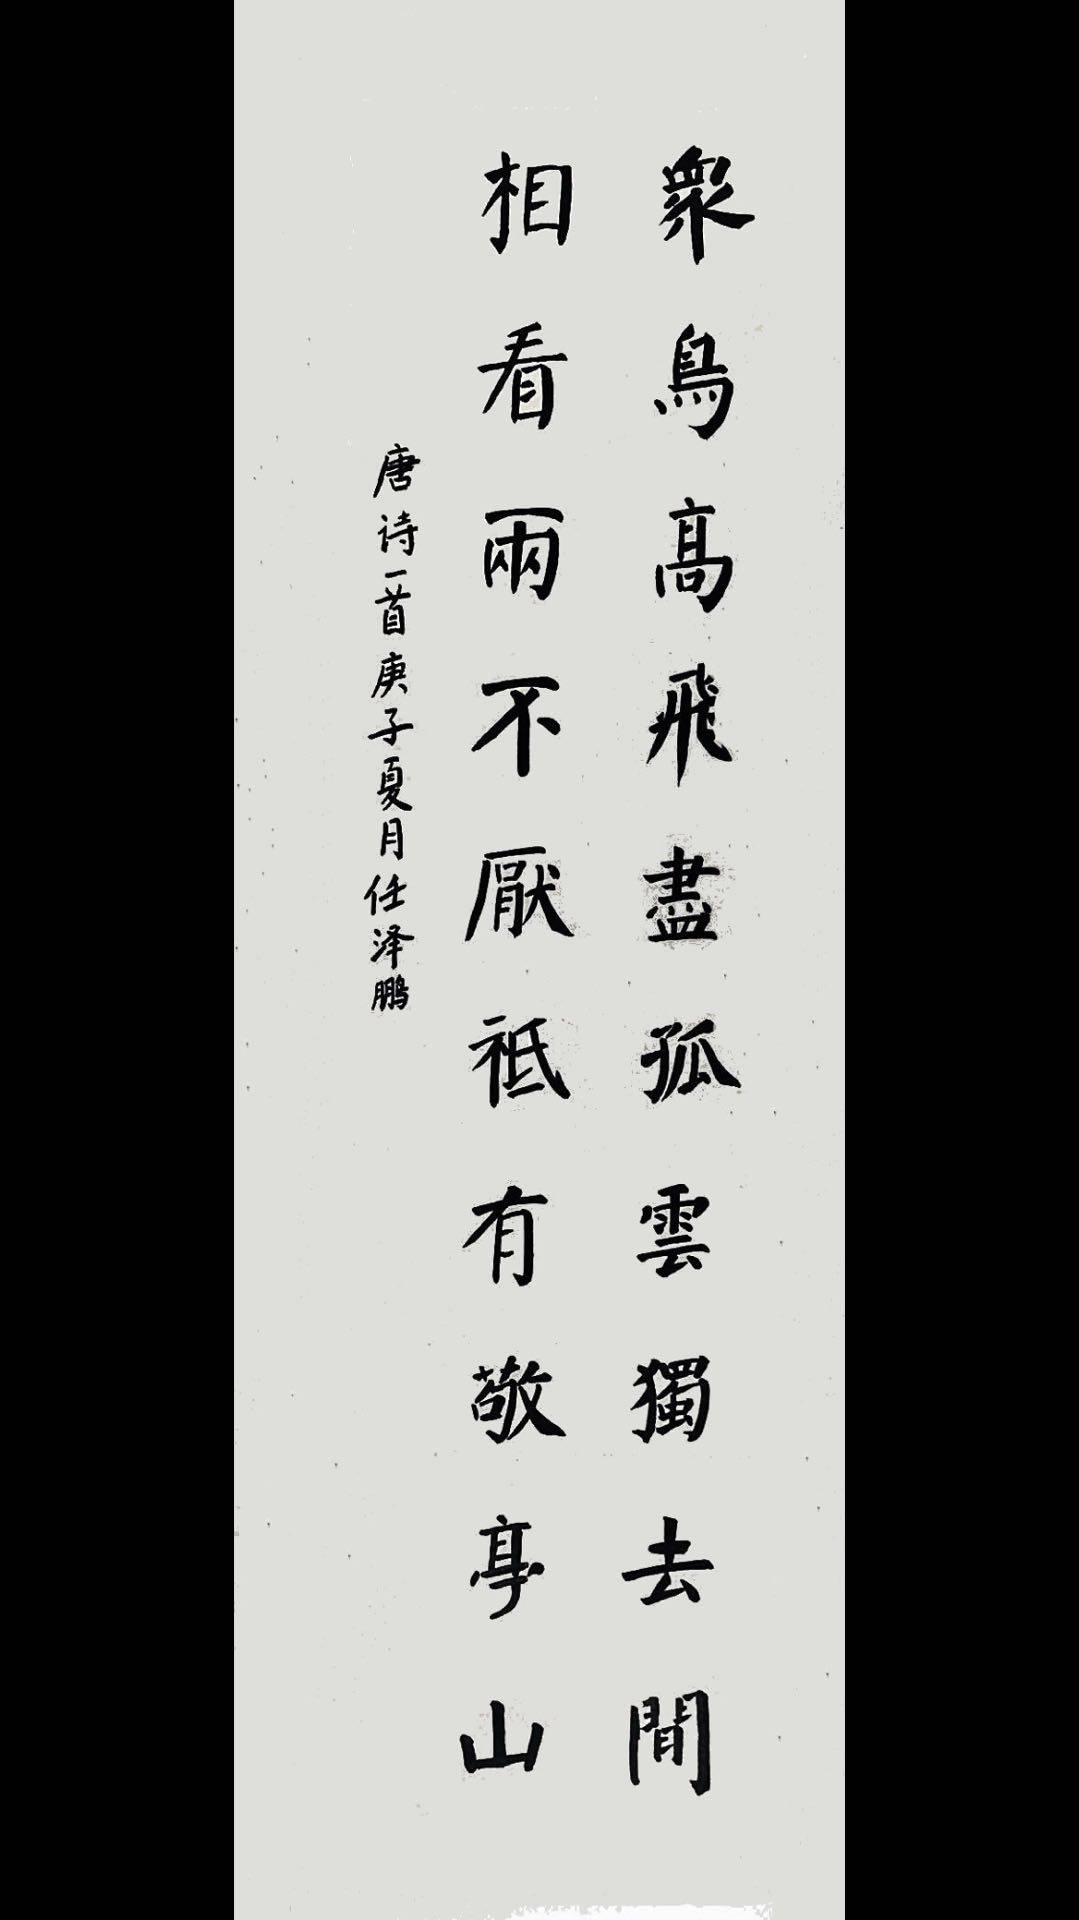 眾鳥高飛盡孤雲獨去間
相看兩不厭祗有敬亭山
唐诗一首庚子夏月任泽鹏